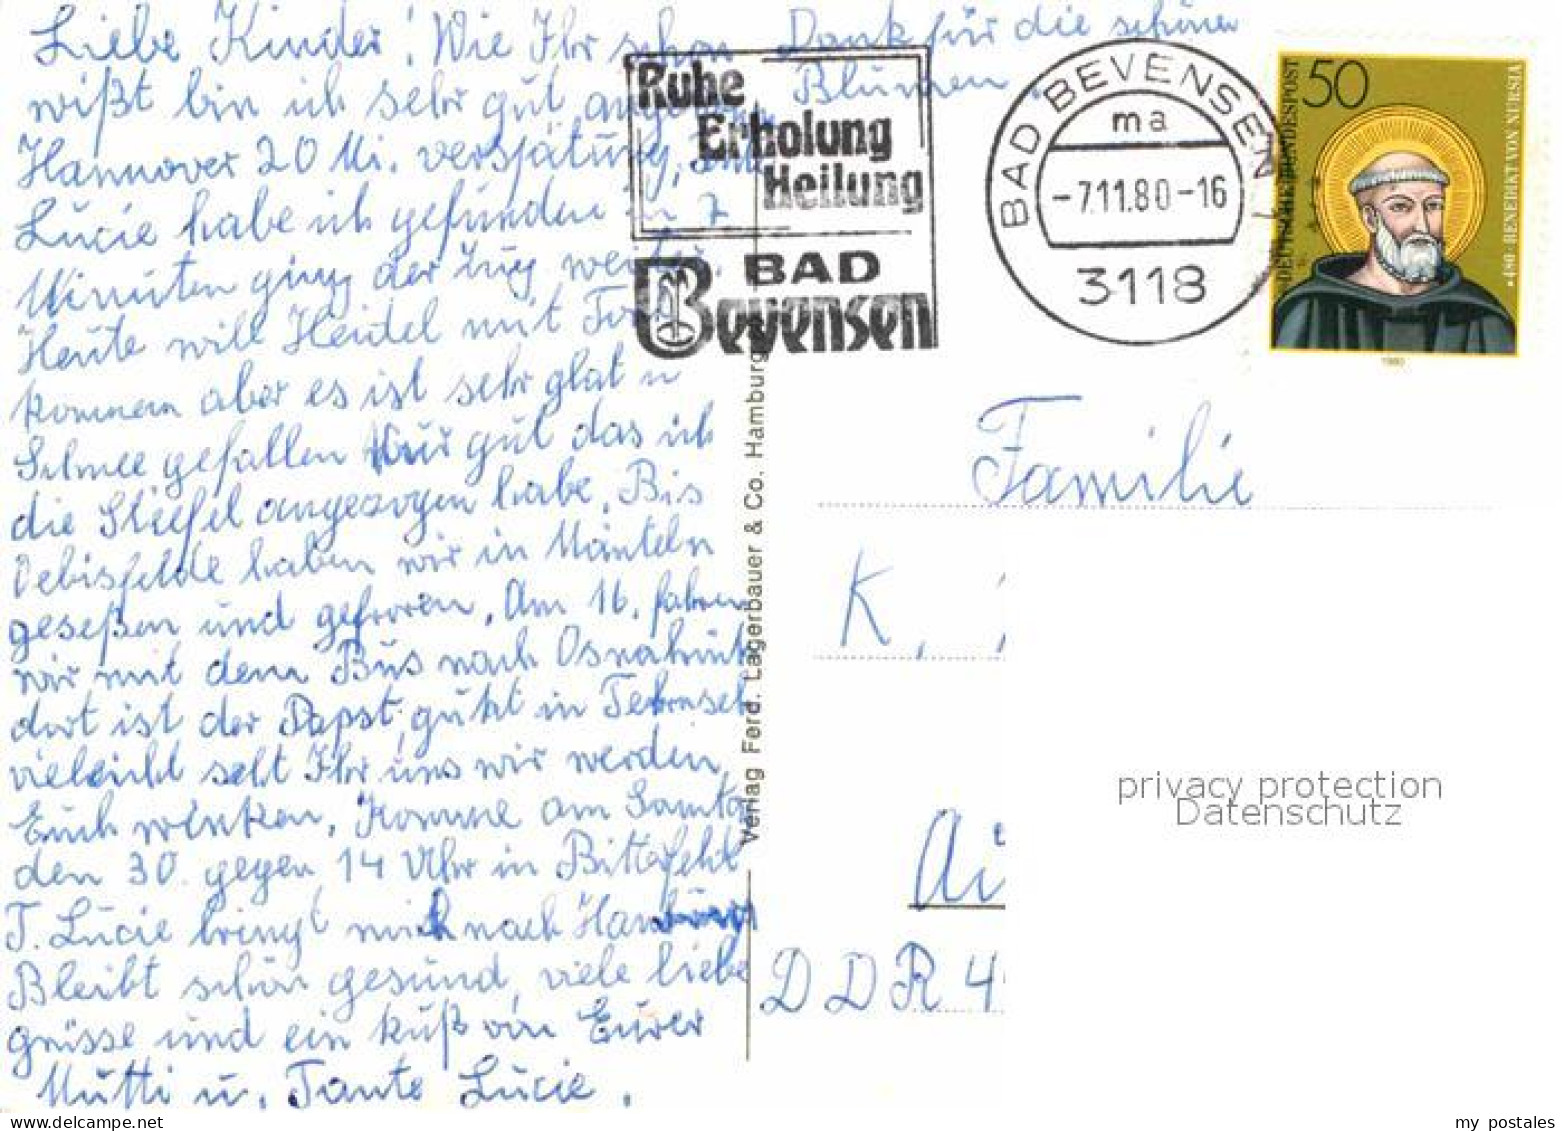 Liebe Kinder! Wie Ihr schon
wißt bin ich sehr gut
Hannover 20 Mi. verspätung,
Lucie habe ich gefunden in 7
Minuten ging der Zug weiter.
Heute will Heidel mit
kommen aber es ist sehr glat u
Schnee gefallen Nur gut das ich
die Stiefel angezogen habe. Bis
Oebisfelde haben wir in Mänteln
geseßen und gefroren. Am 16. fahren
wir mit dem Bus nach Osnabrück
dort ist der Papst, gukt in Fehrnseh
vieleicht seht Ihr uns wir werden
Euch winken. Komme am Samtag
den 30. gegen 14 Uhr in Bitterfeld
T. Lucie bringt mich nach Hamburg
Bleibt schön gesund, viele liebe
grüsse und ein kuß von Eurer
Mutti u. Tante Lucie.
Dank für die schönen
Blumen
Ruhe
Erholung
Heilung
BAD
Bevensen
BAD BEVENSEN
ma
-7.11.80-16
3118
DEUTSCHE BUNDESPOST
50
*480 BENEDIKT VON NURSIA
1980
Verlag Ferd. Lagerbauer & Co. Hamburg
Familie
K.
DDR 4
privacy protection
Datenschutz
delcampe.net
my_postales